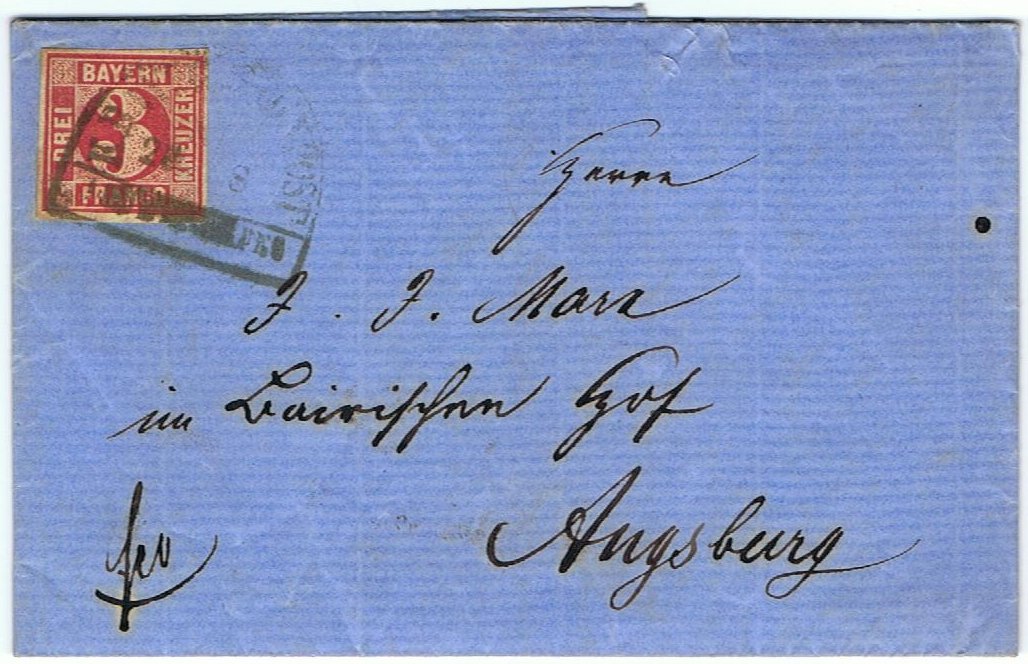 BAYERN
DREI
3
KREUZER
FRANCO
8
Herrn
J. J. Marx
im Bairischen Hof
fco
Augsburg